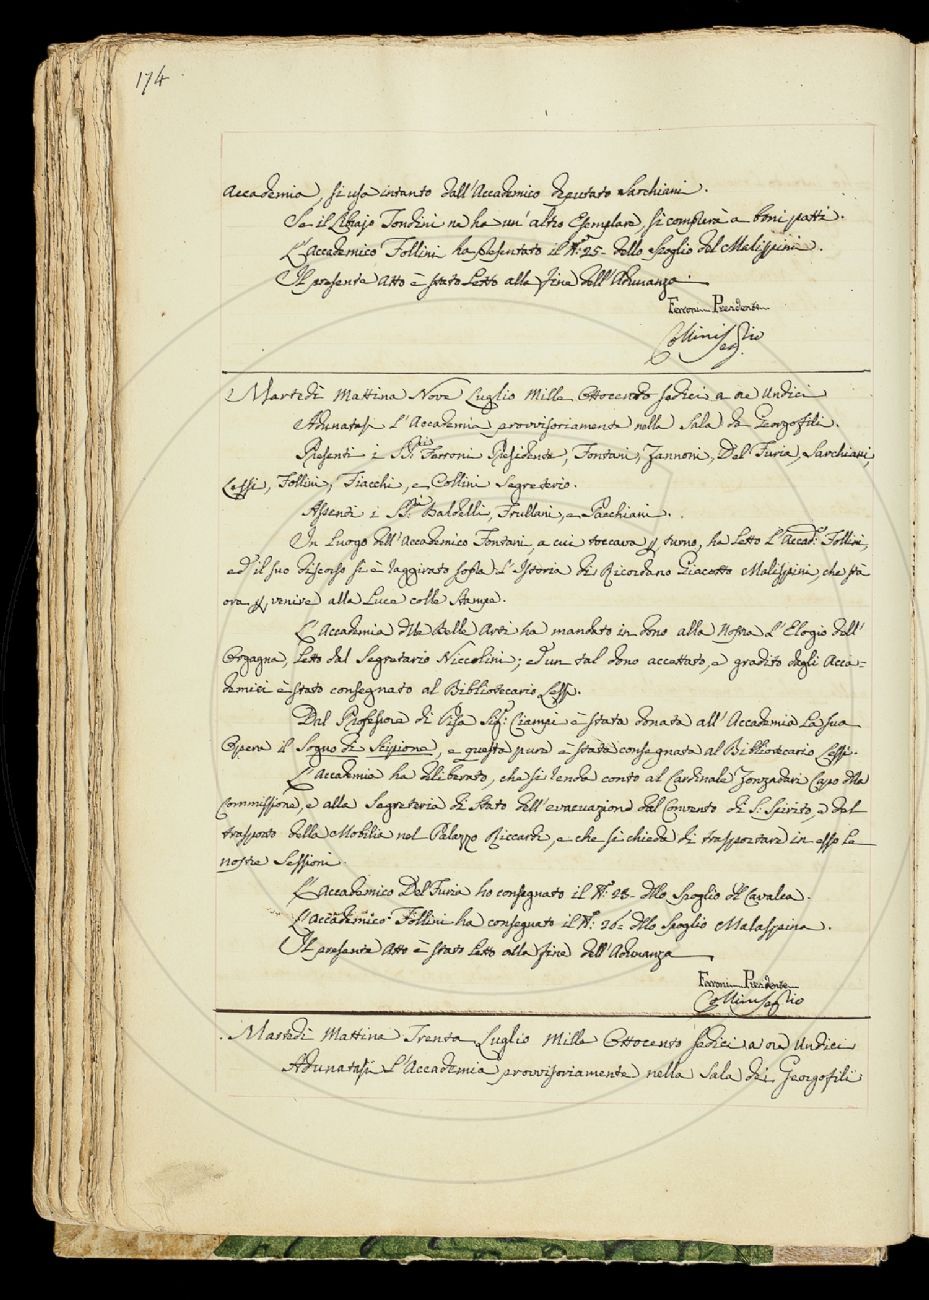 174
Accademia, si usa intanto dall'Accademico deputato Sarchiani.
Se il Librajo Tondini ne ha un'altro Esemplare, si comprerà a boni patti.
L'Accademico Follini ha presentato il N.º 25. dello Spoglio del Malispini.
Il presente Atto è stato Letto alla fine dell'Adunanza
Ferroni Presidente
Collini Seg.rio
Martedì Mattina Nove Luglio Mille Ottocento sedici a ore Undici
Adunatasi L'Accademia provvisoriamente nella Sala de Georgofili.
Presenti i SS.ri Ferroni Presidente, Fontani, Zannoni, Del Furia, Sarchiani,
Lessi, Follini, Fiacchi, e Collini Segretario.
Assenti i SS.ri Baldelli, Frullani, e Sacchiani.
In Luogo dell'Accademico Fontani, a cui toccava p. turno, ha Letto L'Accad.º Follini,
ed il suo discorso si è raggirato sopra L'Istoria di Ricordano Giacotto Malispini, che stà
ora p. venire alla Luce colle Stampe.
L'Accademia delle Belle Arti ha mandato in dono alla Nostra L'Elogio dell'
Orgagna, Letto dal Segretario Niccolini; ed un tal dono accettato, e gradito dagli Acca=
demici è stato consegnato al Bibliotecario Lessi.
Dal Professore di Pisa Sig.r Ciampi è stata donata all'Accademia La sua
Opera il Sogno di Scipione, e questa pure è stata consegnata al Bibliotecario Lessi.
L'Accademia ha deliberato, che si renda conto al Cardinale Zonzadari Capo della
Commissione, e alla Segreteria di Stato dell'evacuazione del Convento di S. Spirito, e del
trasporto della Mobilia nel Palazzo Riccardi, e che si chieda di trasportare in esso le
nostre Sessioni.
L'Accademico Del Furia ha consegnato il N.º 28. dello Spoglio del Cavalca.
L'Accademico Follini ha consegnato il N.º 26. dello Spoglio Malaspina.
Il presente Atto è stato Letto alla fine dell'Adunanza
Ferroni Presidente
Collini Seg.rio
Martedì Mattina Trenta Luglio Mille Ottocento sedici a ore Undici
Adunatasi L'Accademia provvisoriamente nella Sala dei Georgofili